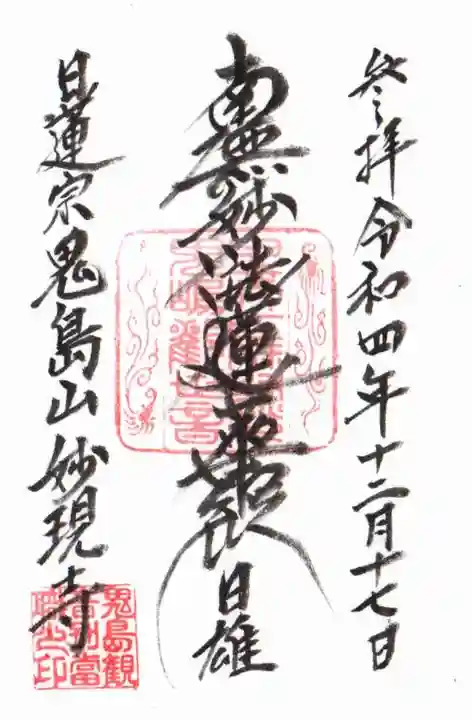 参拝 令和四年十二月十七日
南無妙法蓮華経
日雄
日蓮宗 鬼島山 妙現寺